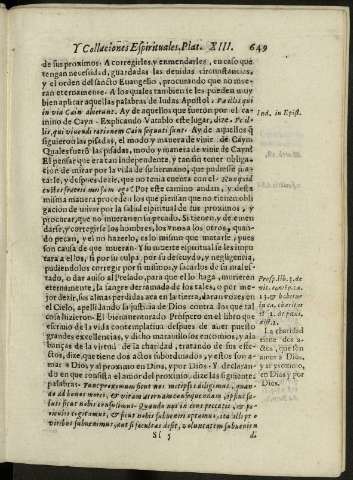 Y Collaciones Espirituales. Plat. XIII. 649
de sus proximos. A corregirlos, y enmendarles, en caso que
tengan necessidad, guardadas las devidas circunstancias,
y el orden del sancto Euangelio, procurando que no mue-
ran eternamente. A los quales tambien se les pueden muy
bien aplicar aquellas palabras de Iudas Apostol.
in via Cain abierunt. Ay de aquellos que fueron por el ca-
mino de Cayn. Explicando Vatablo este lugar, dize.
qui viuendi rationem Cain sequuti sunt. Ay de aquellos q̃
siguieron las pisadas, el modo y manera de viuir de Cayn.
Quales fuerõ las pisadas, modo y manera de viuir de Cayn?
El pensar que era tan independente, y tan sin tener obliga-
cion de mirar por la vida de su hermano, que pudiesse ma-
tarle, y despues dezir, que no tenia cuenta con el.
Por este camino andan, y desta
misma manera proceden los que piensan que no tienen obli-
gacion de viuir por la salud espiritual de sus proximos, y
procurar, que no mueran en su pecado. Si tienen, y de enmen-
darse, y corregirse los hombres, los vnos a los otros, quan-
do pecan, y el no hazerlo, es lo mismo que matarle, pues
son causa de que mueran. Y su muerte espiritual se les impu-
tara a ellos, si por su culpa, por su descuydo, y negligencia,
pudiendolos corregir por si mismos, y sacarlos de su mal es-
tado, o dar auiso al Prelado, para que el lo haga, murieren
eternamente, y la sangre derramada de los tales, o por me-
jor dezir, sus almas perdidas aca en la tierra, daran vozes en
el Cielo, apellidando la justicia de Dios contra dos que tal
cosa hizieron. El bienauenturado Prospero en el libro que
escriuio de la vida contemplatiua despues de auer puesto
grandes excelencias, y dicho marauillosos encomios, y ala-
banças de la virtud de la charidad, tratando de sus effe-
ctos, dize, que tiene dos actos subordinados, y estos son a-
mar a Dios, y al proximo en Dios, y por Dios. Y declaran-
do en que consista el amor del proximo, dize las siguientes
palabras. Tunc proximum sicut nos metipsos diligimus, quan-
do ad bonos mores, & vitam æternam consequendam
sicut nobis consulimus. Quando nos in eius peccatis, &
periculis cogitamus, & sicut nobis subueniri optamus, ita
subuenimus, aut si facultas desit, voluntatem subueniendi
Sſ 5
di
Iud. in Epist.
La charidad
tiene dos a-
ctos, que son
amor a Dios,
y al proximo,
en Dios y por
Dios.